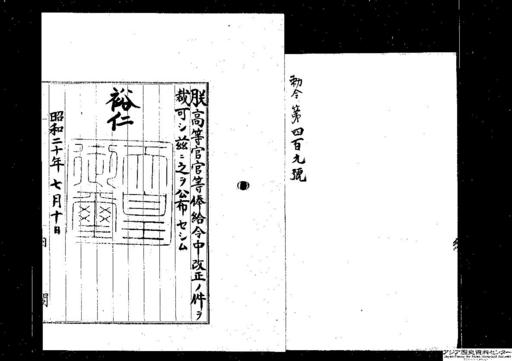 勅令第四百九號
朕高等官官等俸給令中改正ノ件ヲ
裁可シ茲ニ之ヲ公布セシム
裕仁
天皇御璽
昭和二十年七月十日
アジア歴史資料センター
Japan Center for Asian Historical Records